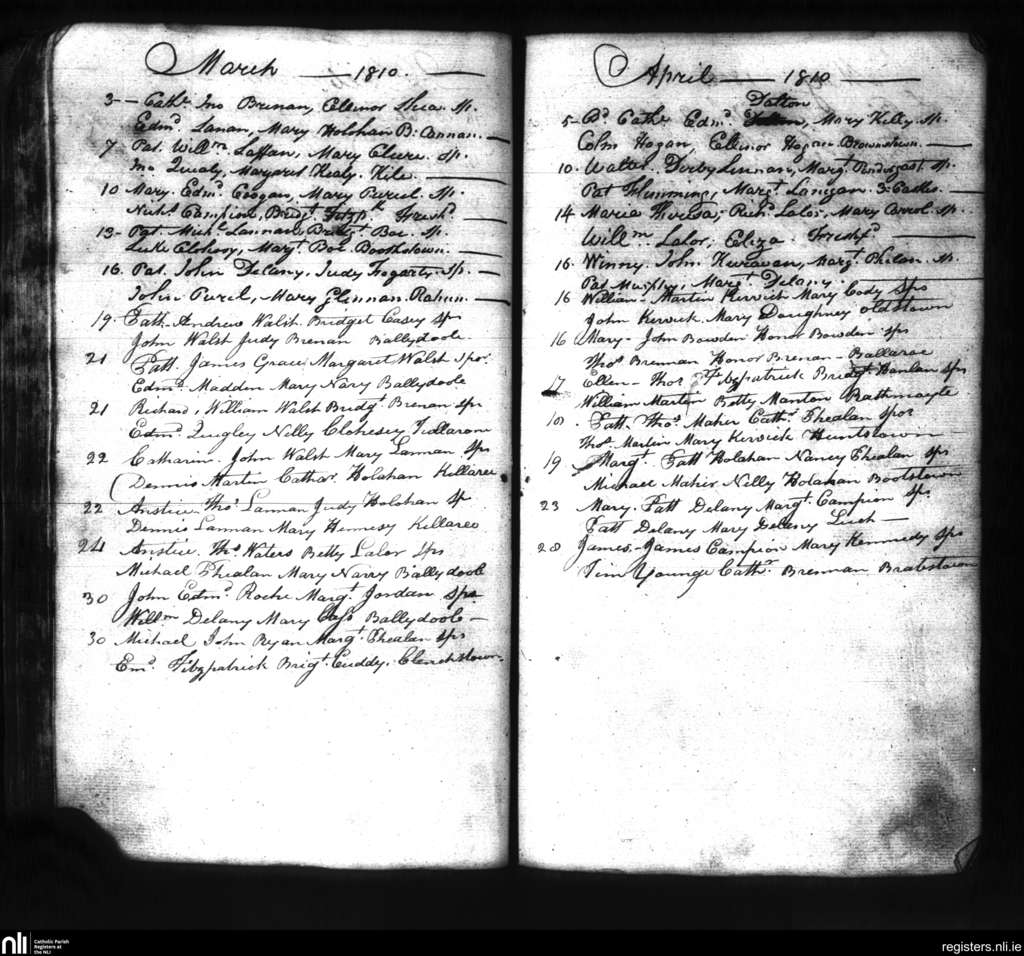 March — 1810. —
3 - Cathe. Jno Brenan, Eleinor Shea sp.
Edmd. Lanan, Mary Holohan B: Cannan. —
7 Pat. Willm. Laffan, Mary Cleere sp.
Jno Quealy, Margaret Healy. Kile. —
10 Mary. Edmd. Coogan, Mary Purcel sp.
Nichs. Campion, Bridgt. Fitzp. Freshd. —
13 - Pat. Michl. Lannan, Bridgt. Boe. sp. —
Luke Clohosy, Margt. Boe. Boothstown. —
16. Pat. John Delany, Judy Fogarty. sp. —
John Purcel, Mary Glennan. Rahun. —
19. Patt. Andrew Walsh. Bridget Casey sps
John Walsh Judy Brenan Ballydoole.
21 Patt. James Grace Margaret Walsh spor.
Edmd. Madden Mary Nary Ballydoole
21 Richard, William Walsh Bridgt. Brenan sps
Edmd. Quigley Nelly Clohesey Tullaroan
22 Catharin. John Walsh Mary Lannan sps
Dennis Martin Cathar. Holahan Killaree
22 Anstice Thos. Lannan Judy Holohan sp
Dennis Lannan Mary Hennesy Killareo
24 Anstice. Thos. Waters Betty Lalor sps
Michael Phealan Mary Narry Ballydoole
30 John Edmd. Roche Margt. Jordan sps
Willm. Delany Mary Ballydoole —
30 Michael John Ryan Margt. Phealan sps
Emd. Fitzpatrick Brigt. Cuddy. Clinchstown.
April — 1810 —
Dalton
5 - Bd. Cathe Edmd. Mary Kelly sp.
Colm Hogan, Elleinor Hogan Brownstown. —
10. Walter Derby Lennan, Margt. Pendergast sp.
Pat Flemming, Margt. Lanigan. 3: Castles. —
14 Maria Theresa, Richd. Lalor, Mary Carrol sp.
Willm Lalor, Eliza. Freshfd. —
16. Winny. John Keravan, Margt. Phelan. sp.
Pat Murphy, Margt. Delany. —
16 William - Martin Kerwick Mary Cody sps
John Kerwick. Mary Doughney oldtown
16 Mary - John Bowden Honor Bowden sps
Thos Brennan Honor Brenan - Ballarae
17 Ellen - Thos Fitzpatrick Bridgt. Hanlan sps
William Martin Betty Manton Rathmoyle
18 Patt. Thos. Maher Cath. Phealan spor
Thos. Martin Mary Kerwick Huntstown
19 Margt. Patt Holahan Nancy Phealan sps
Michael Maher Nelly Holahan Bootstown
23 Mary. Patt Delany Margt. Campion sps
Patt Delany Mary Delany Luch —
28 James. - James Campion Mary Kennedy sps
Tim Younge Cathr. Brennan Brabstown
nli Catholic Parish
Registers at
the NLI
registers.nli.ie